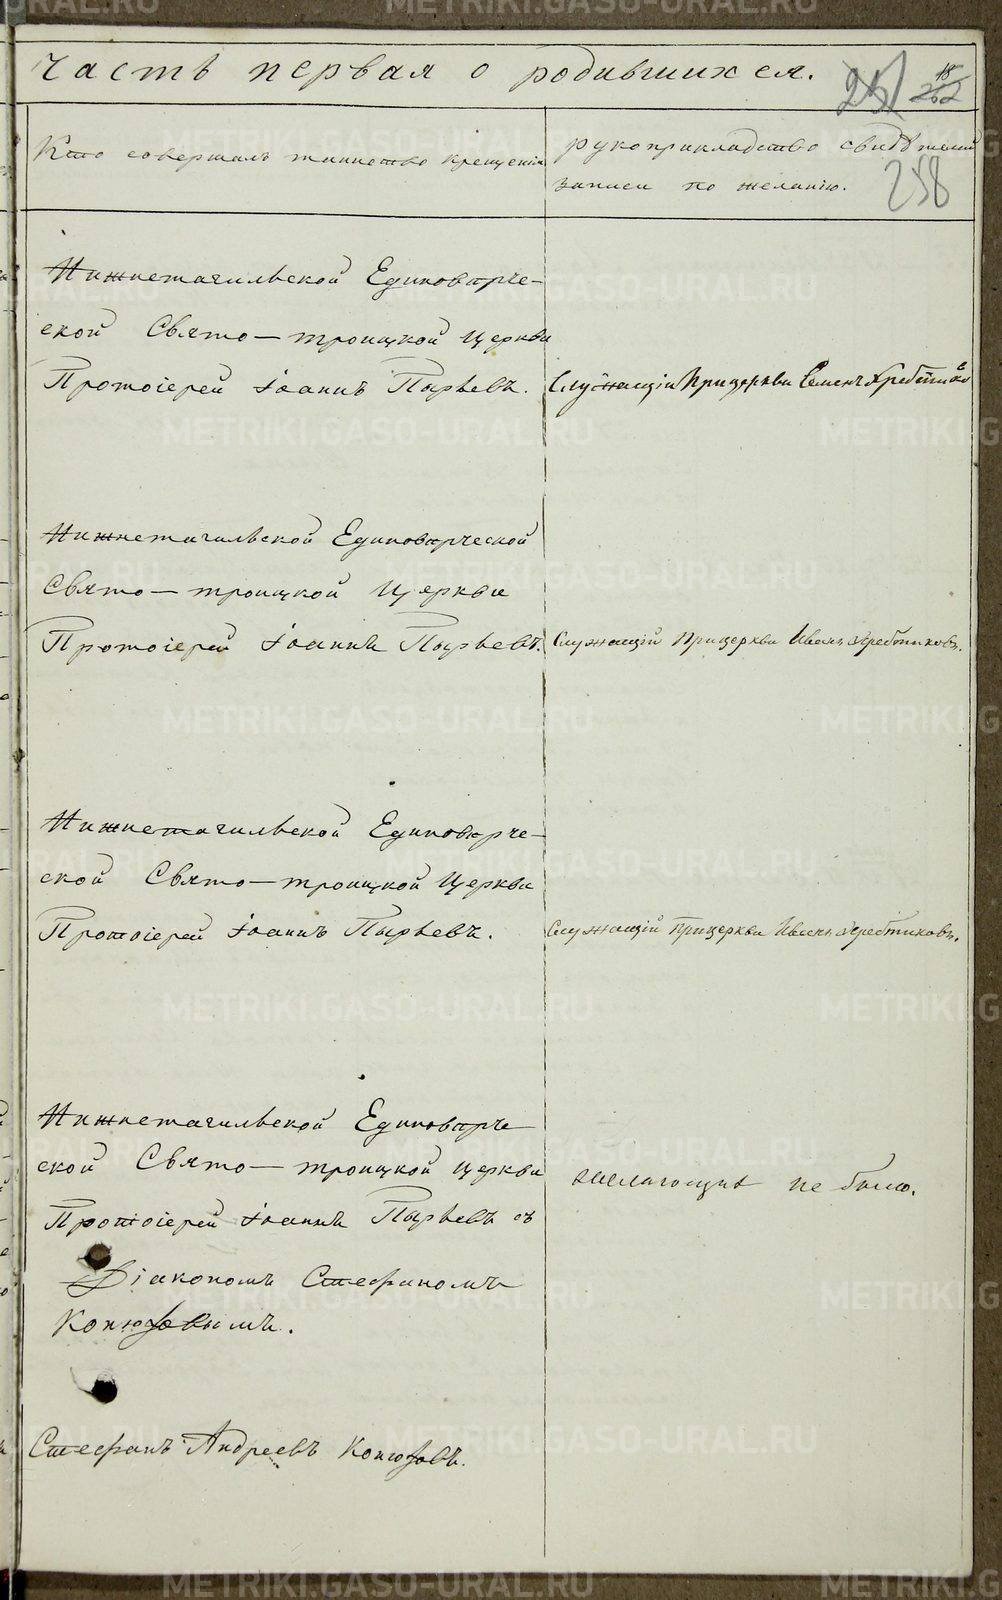 часть первая о родившихся.
18
258
Кто совершалъ таинство крещенія
рукоприкладство свидѣтелей
записи по желанію.
Нижнетагильской Единовѣрче-
ской Свято-троицкой Церкви
Протоіерей Іоаннъ Пырьевъ.
Служащій Прицеркви Семенъ Хребтиковъ
Нижнетагильской Единовѣрческой
Свято-троицкой Церкви
Протоіерей Іоаннъ Пырьевъ.
Служащій Прицеркви Иванъ Хребтиковъ.
Нижнетагильской Единовѣрче-
ской Свято-троицкой Церкви
Протоіерей Іоаннъ Пырьевъ.
Служащій Прицеркви Иванъ Хребтиковъ.
Нижнетагильской Единовѣрче
ской Свято-троицкой церкви
Протоіерей Іоаннъ Пырьевъ съ
Діакономъ Стефаномъ
Конюховымъ.
желающихъ не было.
Стефанъ Андреевъ Конюховъ.
METRIKI.GASO-URAL.RU